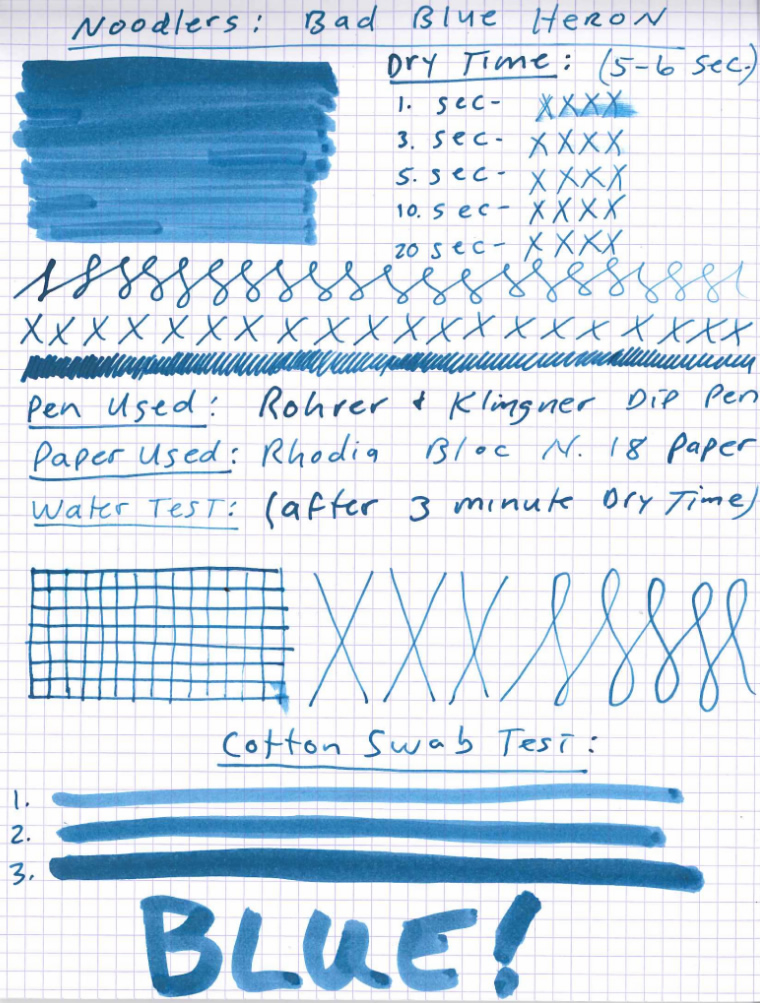 Noodlers: Bad Blue Heron
Dry Time: (5-6 sec.)
1. sec- XXXX
3. sec- XXXX
5. sec- XXXX
10. sec- XXXX
20 sec- XXXX
XXXXXXXXXXXXXXXXXXX
Pen Used: Rohrer & Klingner Dip Pen
Paper Used: Rhodia Bloc N. 18 Paper
Water Test: (after 3 minute Dry Time)
XXX
Cotton Swab Test:
1.
2.
3.
BLUE!